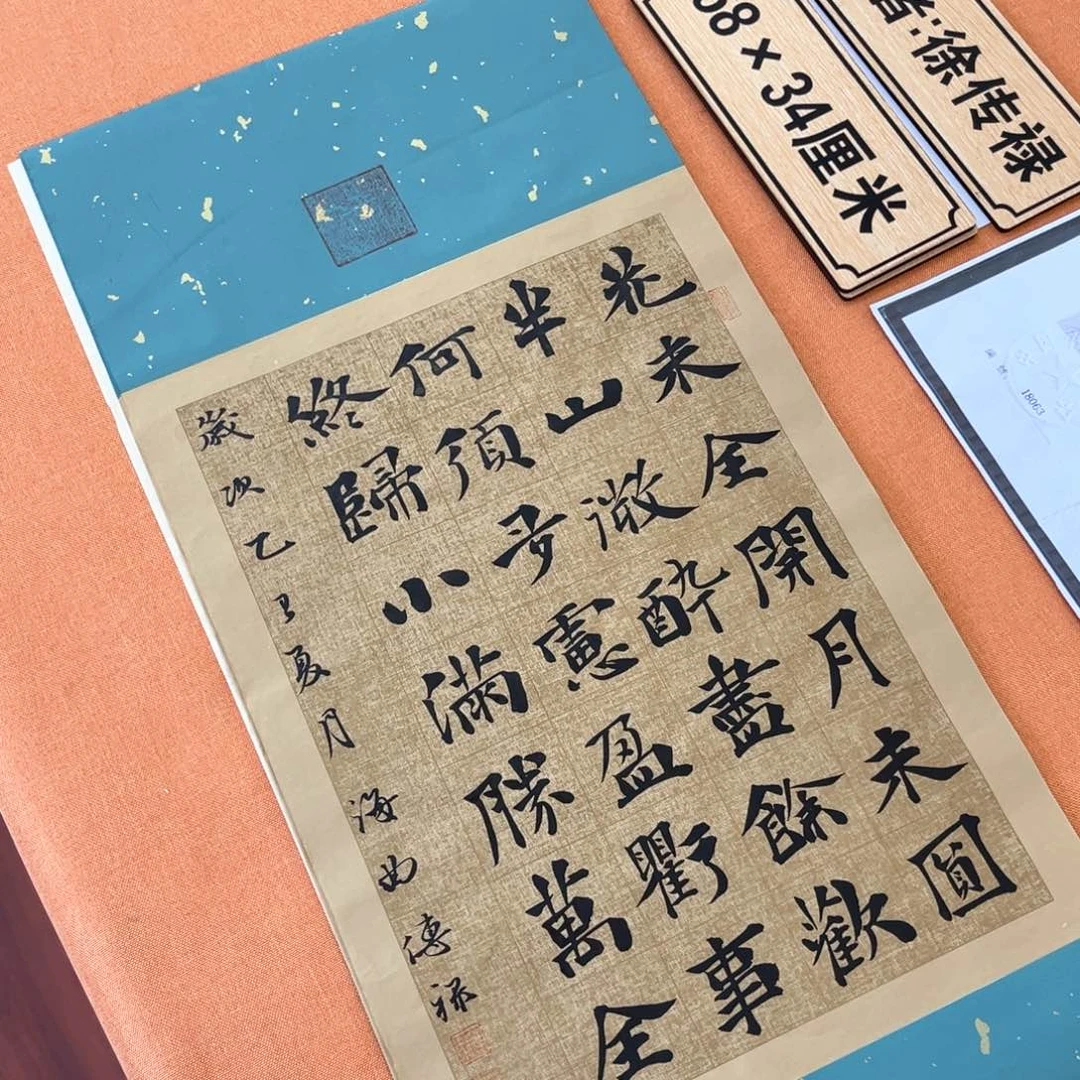 花未全開月未圓
半山微醉盡餘歡
何須多慮盈虧事
終歸小滿勝萬全
歲次乙巳夏月海曲傳祿
68×34厘米
者:徐传禄
18063